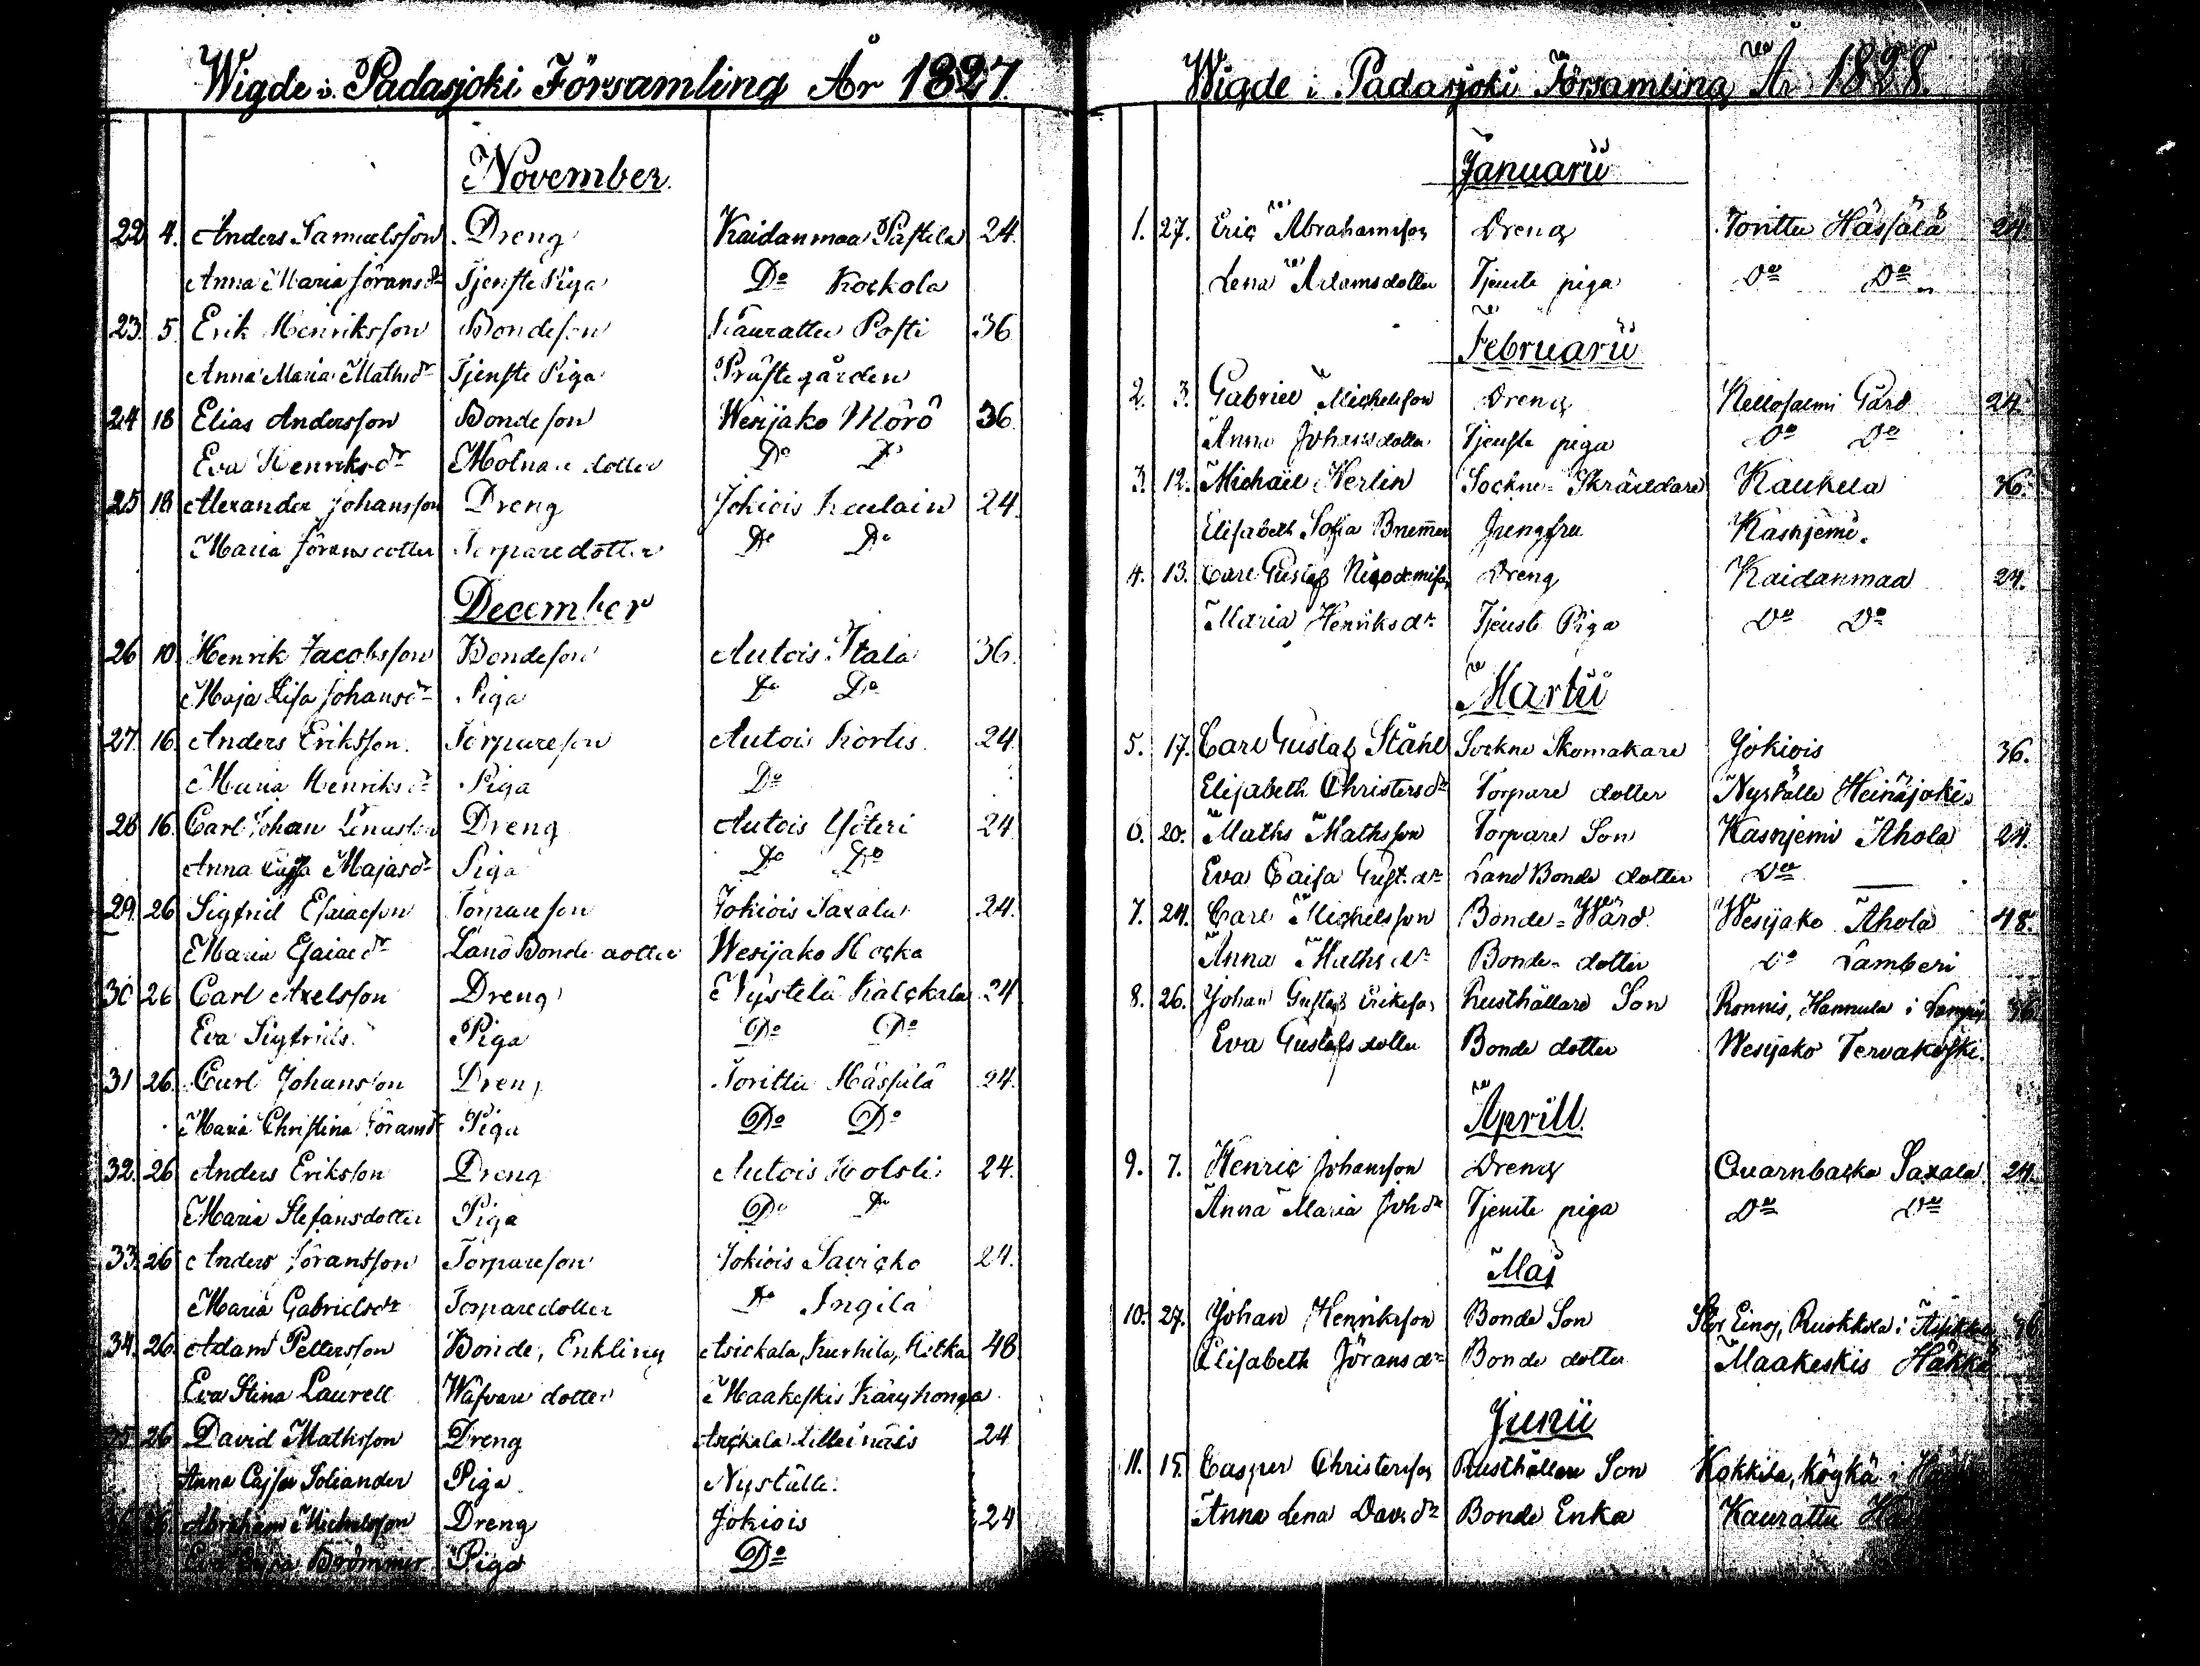 Wigde i Padasjoki Församling År 1827.
November.
22 4. Anders Samuelsson Dreng Kaidanmaa Pastila 24.
Anna Maria Jöransdr Tjenste Piga Do Kockola
23. 5 Erik Henriksson Bondeson Kaurattu Posti 36
Anna Maria Mathsdr Tjenste Piga Prästegården
24 18 Elias Andersson Bondeson Wesijako Mörö 36
Eva Henriksdr Mölnare dotter Do Do
25 18 Alexander Johansson Dreng Jokiois Kaulain 24.
Maria Jöransdotter Torparedotter Do Do
December
26 10 Henrik Jacobsson Bondeson Autois Itala 36.
Maja Lisa Johansdr Piga Do Do
27. 16. Anders Eriksson. Torpareson Autois 24.
Maria Henriksdr Piga Do
28 16. Carl Johan Dreng Autois 24
Anna Cajsa Majasdr Piga Do Do
29. 26 Sigfrid Esaiasson Torpareson Jokiois Saxala 24.
Maria Esaiaedr Land Bonde dotter Wesijako Hocka
30 26 Carl Axelsson Dreng Nystelä Kalckala 24
Eva Sigfrids. Piga Do Do
31 26. Carl Johansson Dreng Torittu Hässälä 24.
Maria Christina Göransdr Piga Do Do
32. 26 Anders Eriksson Dreng Autois Holsti 24.
Maria Stefansdotter Piga Do Do
33. 26 Anders Jöransson Torpareson Jokiois Savicko 24.
Maria Gabrielsdr Torparedotter Do Ingilä
34. 26. Adam Pettersson Bonde, Enkling Asickala, Kurhila, Hilka 48
Eva Stina Laurell Wäfvare dotter Maakeskis Käryhonga
35. 26 David Mathsson Dreng Asickala 24
Anna Cajsa Soliander Piga. Nyställe.
36 26 Abraham Michelsson Dreng Jokiois 24
Eva Brommer Piga Do
Wigde i Padasjoki Församling År 1828.
Januarii
1. 27. Eric Abrahamsson Dreng Torittu Hässälä 24.
Lena Adamsdotter Tjenste piga Do Do
Februarii
2. 3. Gabriel Michelsson Dreng Kellosalmi Gård 24.
Anna Johansdotter Tjenste piga Do Do
3. 12. Michael Herlin Sockne-Skräddare Kaukela 36.
Elisabeth Sofia Jungfru Kasnjemi.
4. 13. Carl Gustaf Nicodemisson Dreng Kaidanmaa 24.
Maria Henriksdr Tjenste Piga Do Do
Martii
5. 17. Carl Gustaf Ståhl Sockne Skomakare Jokiois 36.
Elisabeth Christersdr Torpare dotter Nyställe Heinäjoki
6. 20. Maths Mathsson Torpare Son Kasnjemi Ahola 24.
Eva Caisa Gust.dr Land Bonde dotter Do
7. 24. Carl Michelsson Bonde-Wärd Wesijako Ahola 48.
Anna Mathsdr Bonde-dotter Do Lamberi
8. 26. Johan Gustaf Eriksson Rusthållare Son Ronnis, Hannula i Lampis 36
Eva Gustafsdotter Bonde dotter Wesijako Tervakoski.
Aprill.
9. 7. Henric Johansson Dreng Quarnbacka Saxala 24.
Anna Maria Johdr Tjenste piga Do Do
Maj
10. 27. Johan Henriksson Bonde Son Stor Einoj, Ruokkola i Asikkala 36
Elisabeth Jöransdr Bonde dotter Maakeskis Häkkä
Junii
11. 15. Casper Christersson Rusthållare Son Kokkila, Köykä i
Anna Lena Davsdr Bonde Enka Kaurattu